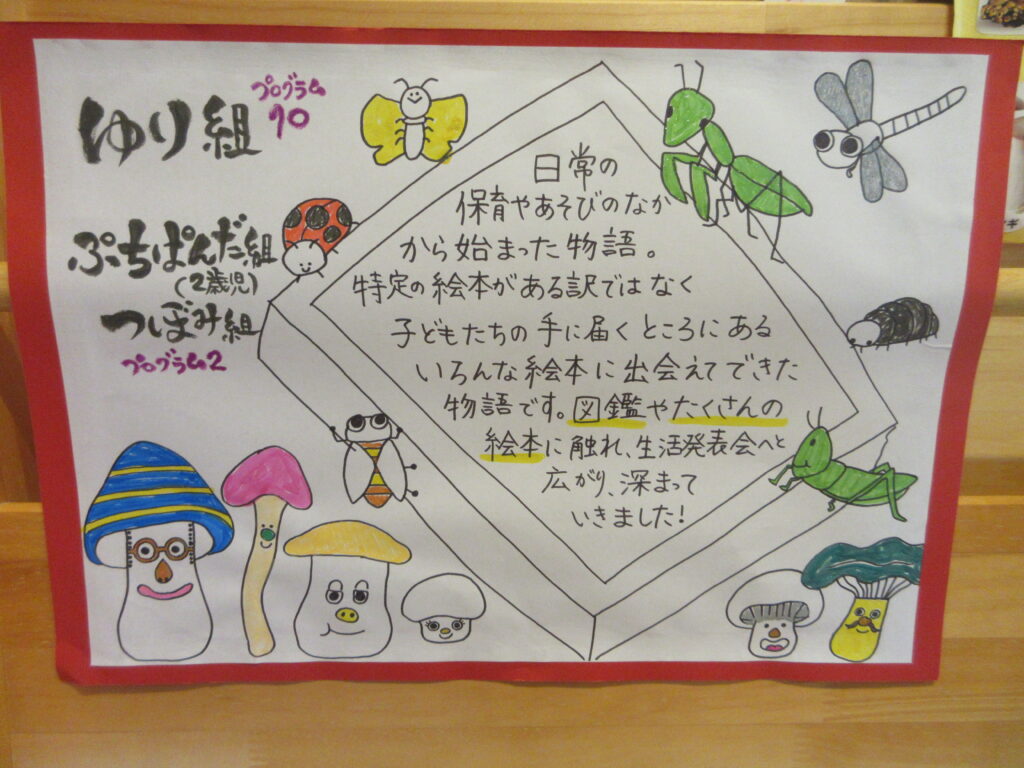 ゆり組
プログラム
10
ぷちぱんだ組
(2歳児)
つぼみ組
プログラム2
日常の
保育やあそびのなか
から始まった物語。
特定の絵本がある訳ではなく
子どもたちの手に届くところにある
いろんな絵本に出会えてできた
物語です。図鑑やたくさんの
絵本に触れ、生活発表会へと
広がり、深まって
いきました!